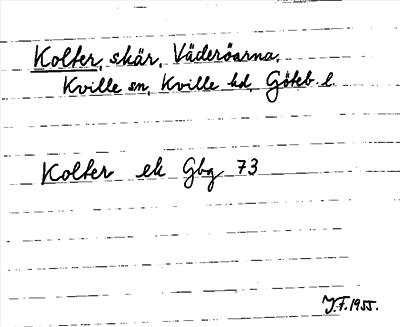 Kolter, skär, Väderöarna,
Kville sn, Kville hd, Göteb. l.
Kolter ek Gbg 73
J.F. 1955.